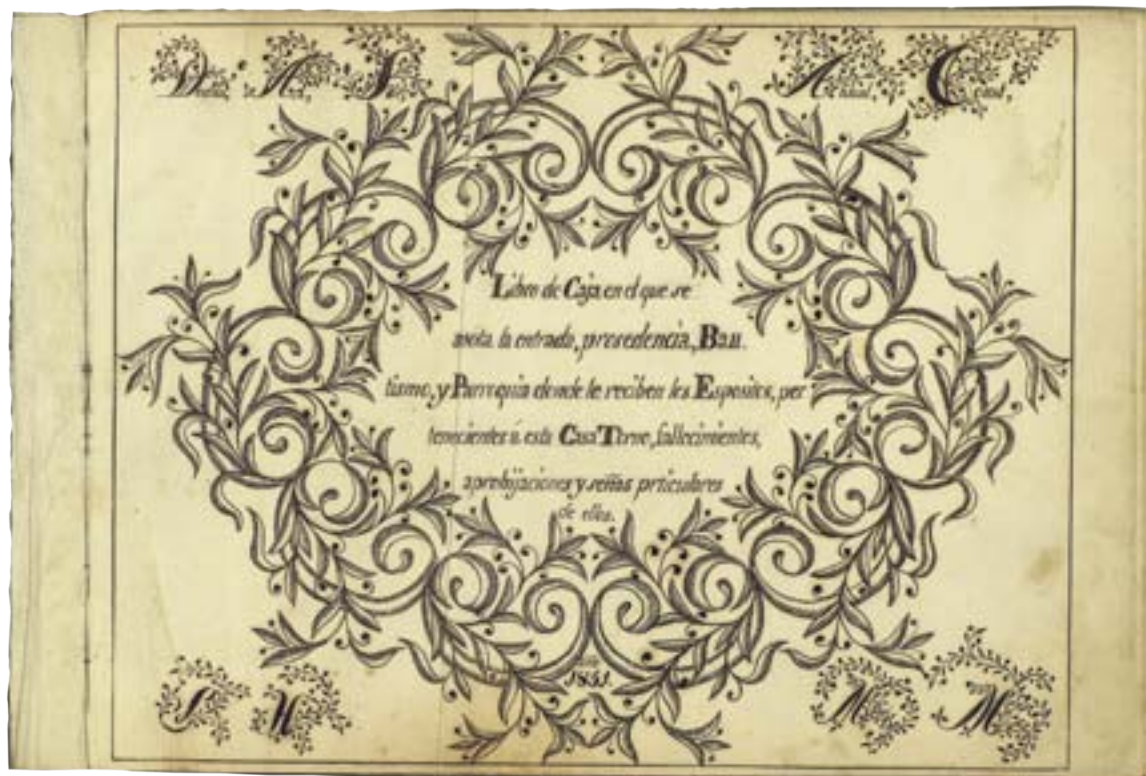 Libro de Caja en el que se
anota la entrada, prosedencia, Bau.
tismo, y Parroquia donde le reciben los Espositos, per
tenecientes á esta Casa Torno, fallecimientos,
aprohijaciones y señas prticulares
de ellos.
1851.